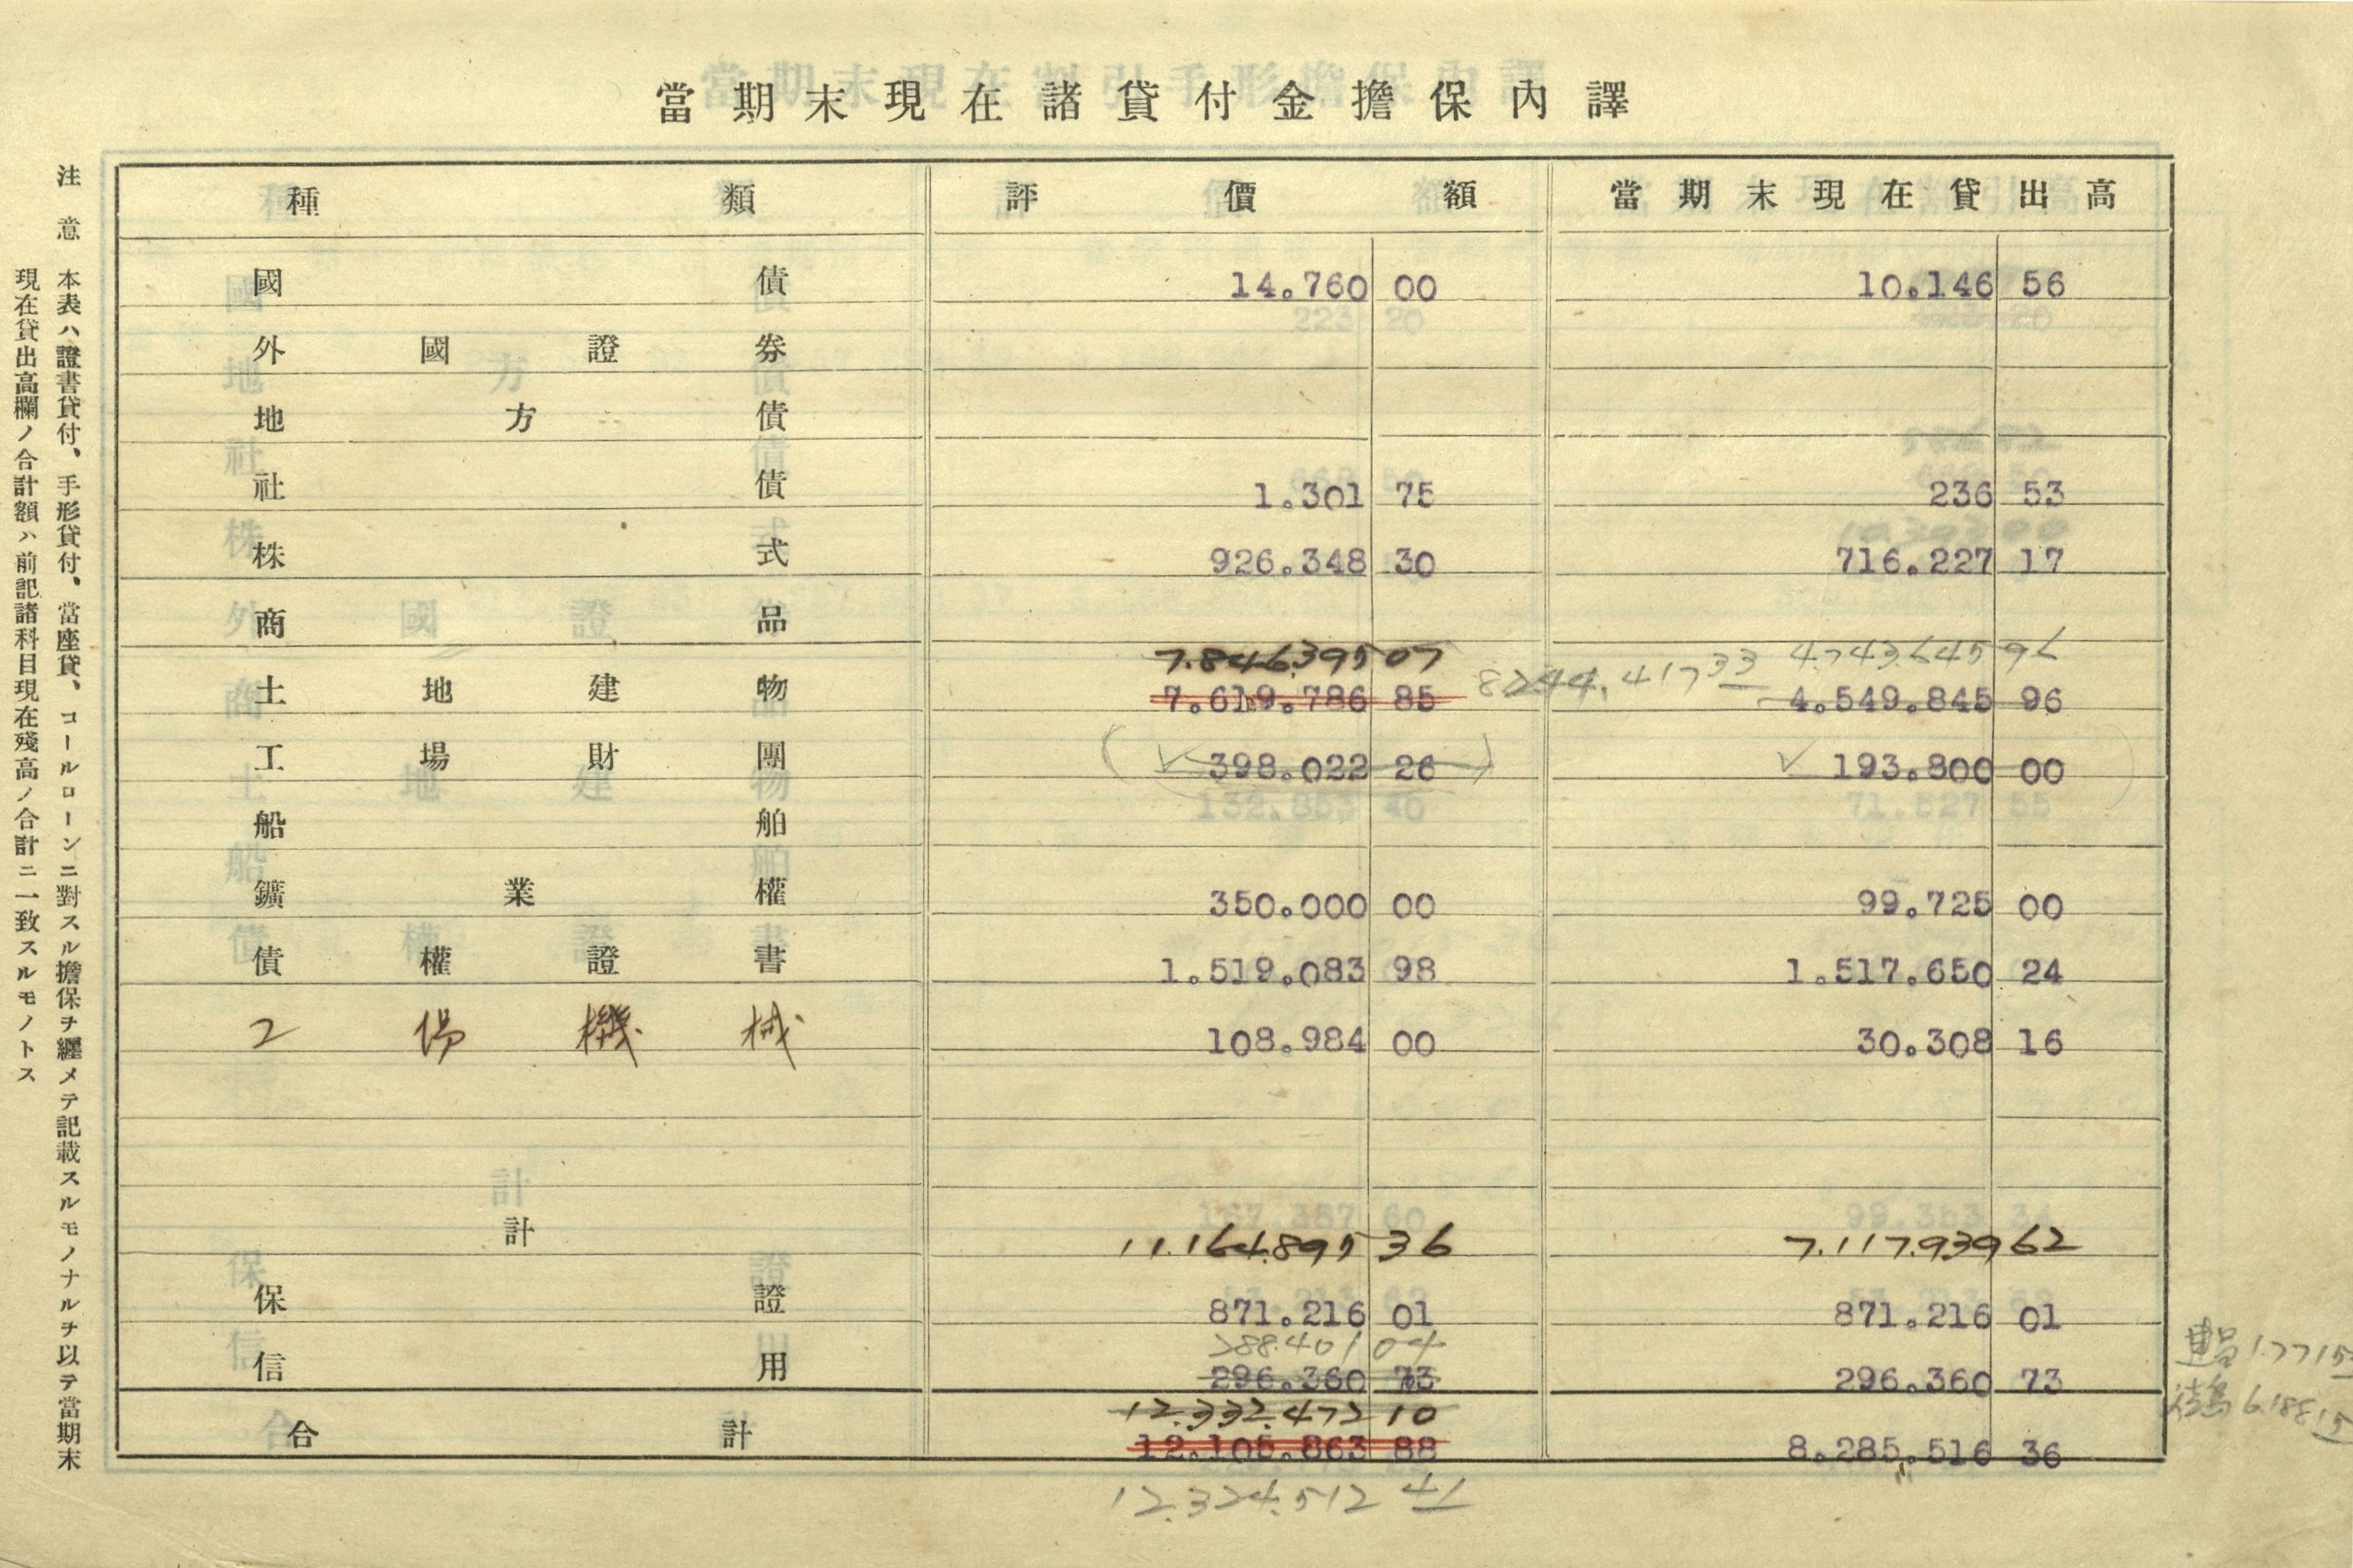 當期末現在諸貸付金擔保內譯
種類 評價額 當期末現在貸出高
國債 14.760 00 10.146 56
外國證券
地方債
社債 1.301 75 236 53
株式 926.348 30 716.227 17
商品
7.846.395 07 8244.417 33 4.743.645 96
土地建物 7.619.786 85 4.549.845 96
工場財團 (✓ 398.022 26) ✓ 193.800 00
船舶
鑛業權 350.000 00 99.725 00
債權證書 1.519.083 98 1.517.650 24
工場機械 108.984 00 30.308 16
計 11.164.895 36 7.117.939 62
保證 871.216 01 871.216 01
288.401 04
信用 296.360 73 296.360 73
12.332.472 10
合計 12.105.863 88 8.285.516 36
12.324.512 41
注意 本表ハ證書貸付、手形貸付、當座貸、コールローンニ對スル擔保ヲ纒メテ記載スルモノナルヲ以テ當期末
現在貸出高欄ノ合計額ハ前記諸科目現在殘高ノ合計ニ一致スルモノトス